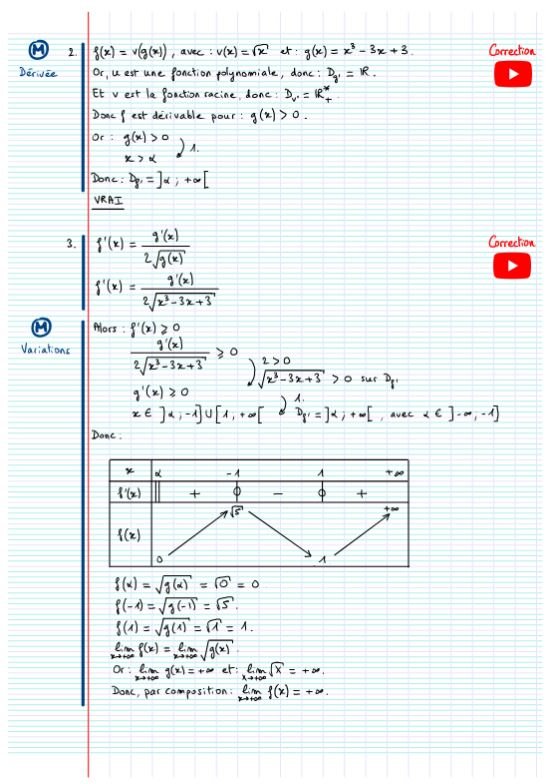 M 2. f(x) = v(g(x)), avec : v(x) = √x et : g(x) = x³ − 3x + 3. Correction
Dérivée Or, u est une fonction polynomiale, donc : D_g' = ℝ.
Et v est la fonction racine, donc : D_v' = ℝ₊*.
Donc f est dérivable pour : g(x) > 0.
Or : g(x) > 0
x > α ⤸ 1.
Donc : D_f' = ]α ; +∞[
VRAI
3. f'(x) = g'(x) / (2√g(x)) Correction
f'(x) = g'(x) / (2√(x³ − 3x + 3))
M Alors : f'(x) ⩾ 0
Variations g'(x) / (2√(x³ − 3x + 3)) ⩾ 0 ⤸ 2 > 0
√(x³ − 3x + 3) > 0 sur D_f'
g'(x) ⩾ 0 ⤸ 1.
x ∈ ]α ; −1] ∪ [1 ; +∞[ D_f' = ]α ; +∞[, avec α ∈ ]−∞ ; −1]
Donc :
x α −1 1 +∞
f'(x) + 0 − 0 +
√5 +∞
f(x)
0 1
f(α) = √g(α) = √0 = 0.
f(−1) = √g(−1) = √5.
f(1) = √g(1) = √1 = 1.
lim x→+∞ f(x) = lim x→+∞ √g(x).
Or : lim x→+∞ g(x) = +∞ et : lim X→+∞ √X = +∞.
Donc, par composition : lim x→+∞ f(x) = +∞.